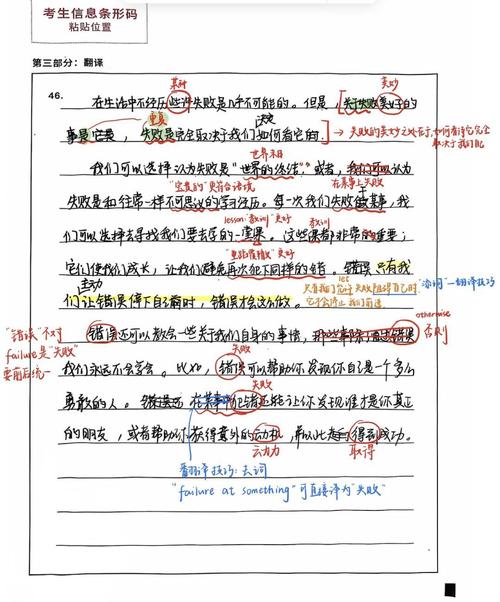 考生信息条形码
粘贴位置
第三部分：翻译
某种
美妙
46.
在生活中不经历些许失败是几乎不可能的。但是，关于失败美好的
重复
决定
事是它是，失败是完全取决于我们如何看它的
→失败的美妙之处在于，如何看待它完全取决于我们自己
世界末日
我们可以选择认为失败是“世界的终结”，或者，我们可以认为
“宝贵的”更符合语境
在某事上失败
失败是和往常一样不可思议的学习经历。每一次我们失败做某事，我
lesson“教训”更好
教训
们可以选择去寻找我们要去学的课。这些课都非常的重要；
“更能Here”更好
它们使我们成长，让我们避免再次犯下同样的错。错误只有我
主动
们让错误停下自己前时，错误才会这么做。
“添词”—翻译技巧
otherwise
否则
“错误”不对
failure是“失败”
要前后统一
错误还可以教会一些关于我们自身的事情，那些除了通过错误
失败
我们永远不会学会。比如，错误可以帮助你发现你自己是一个多么
失败
勇敢的人。错误还在某事中犯错还能让你发现谁才是你真正
的朋友，或者帮助你获得意外的动机，并以此走向得到成功。
去动力
取得
翻译技巧：去词
“failure at something”可直接译为“失败”